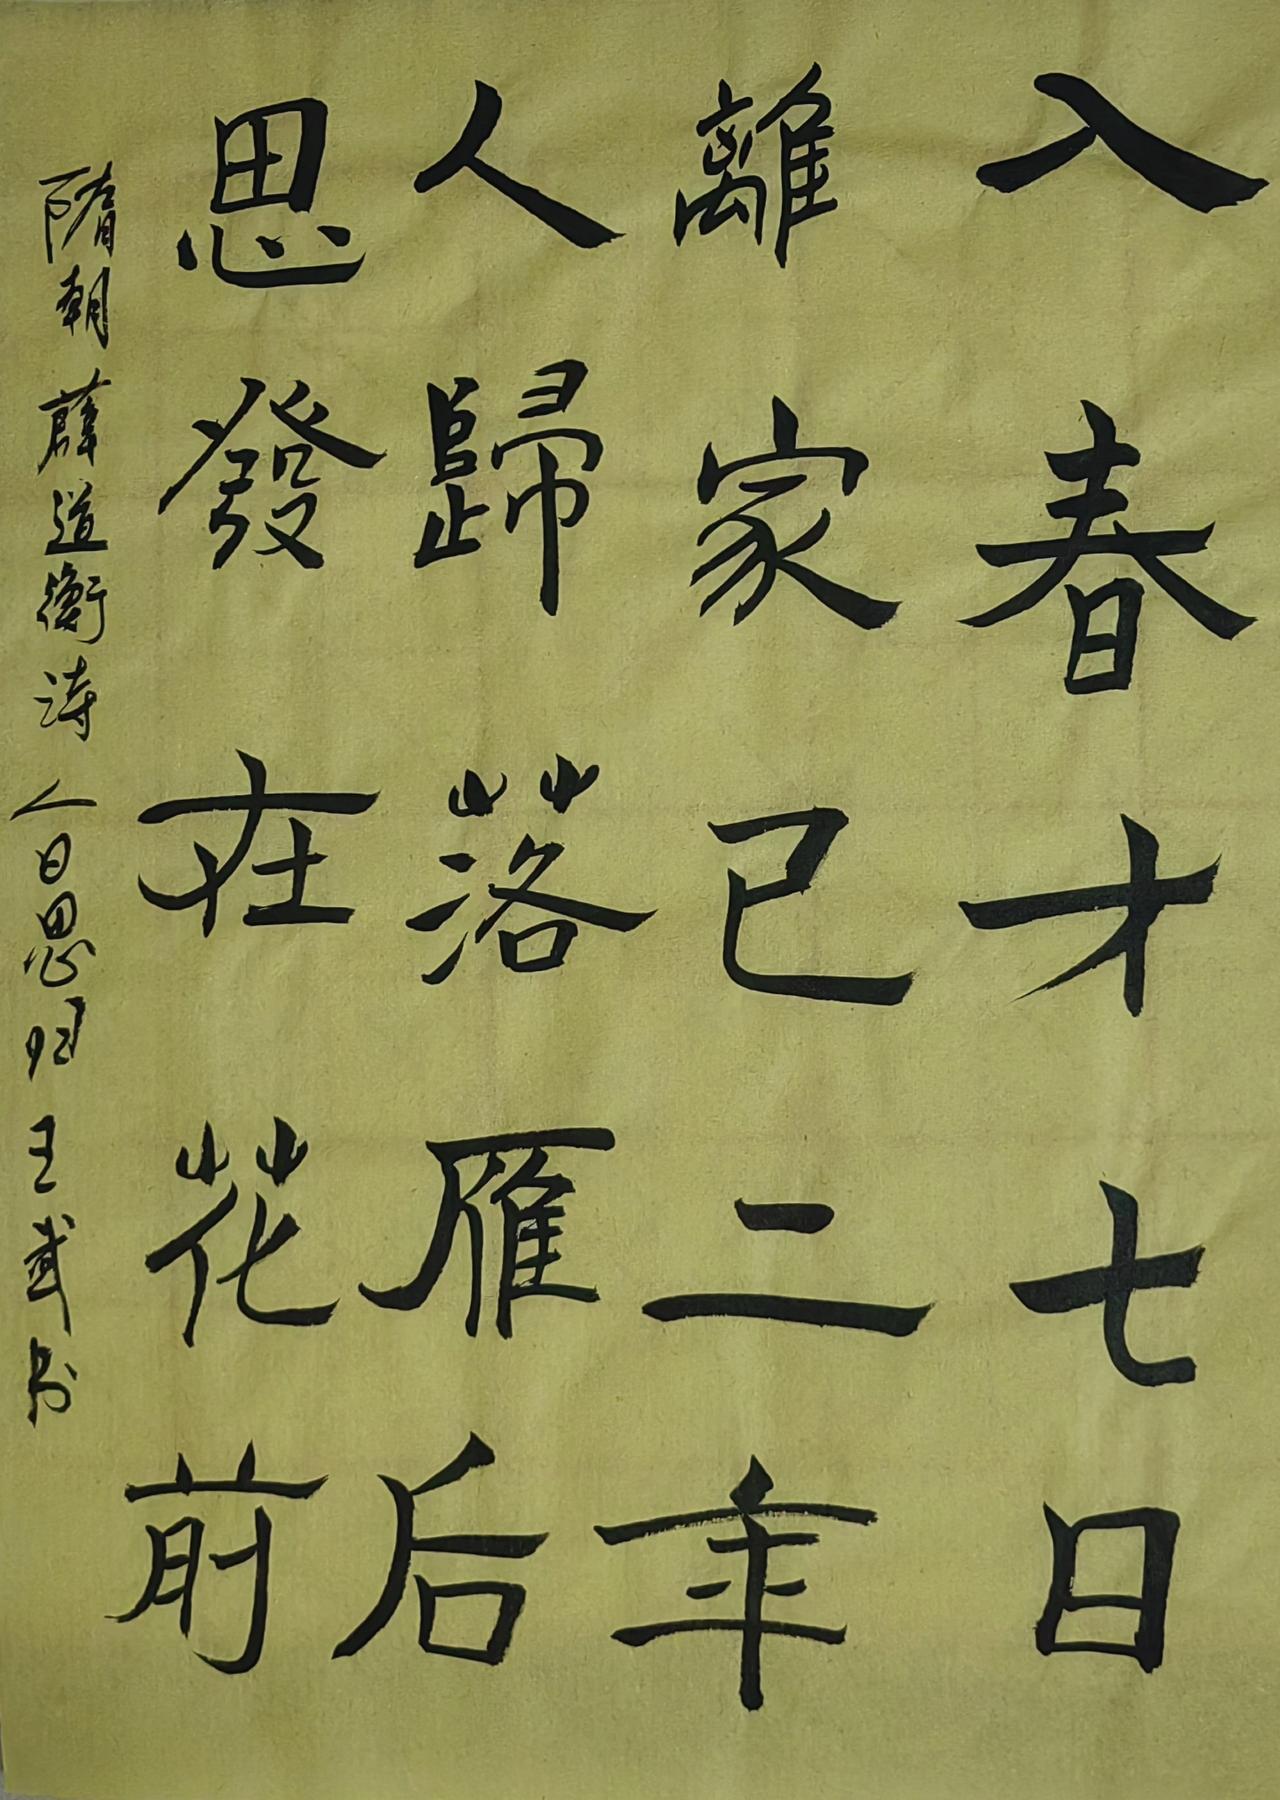 入春才七日
離家已二年
人歸落雁后
思發在花前
隋朝薛道衡诗人日思归王武书